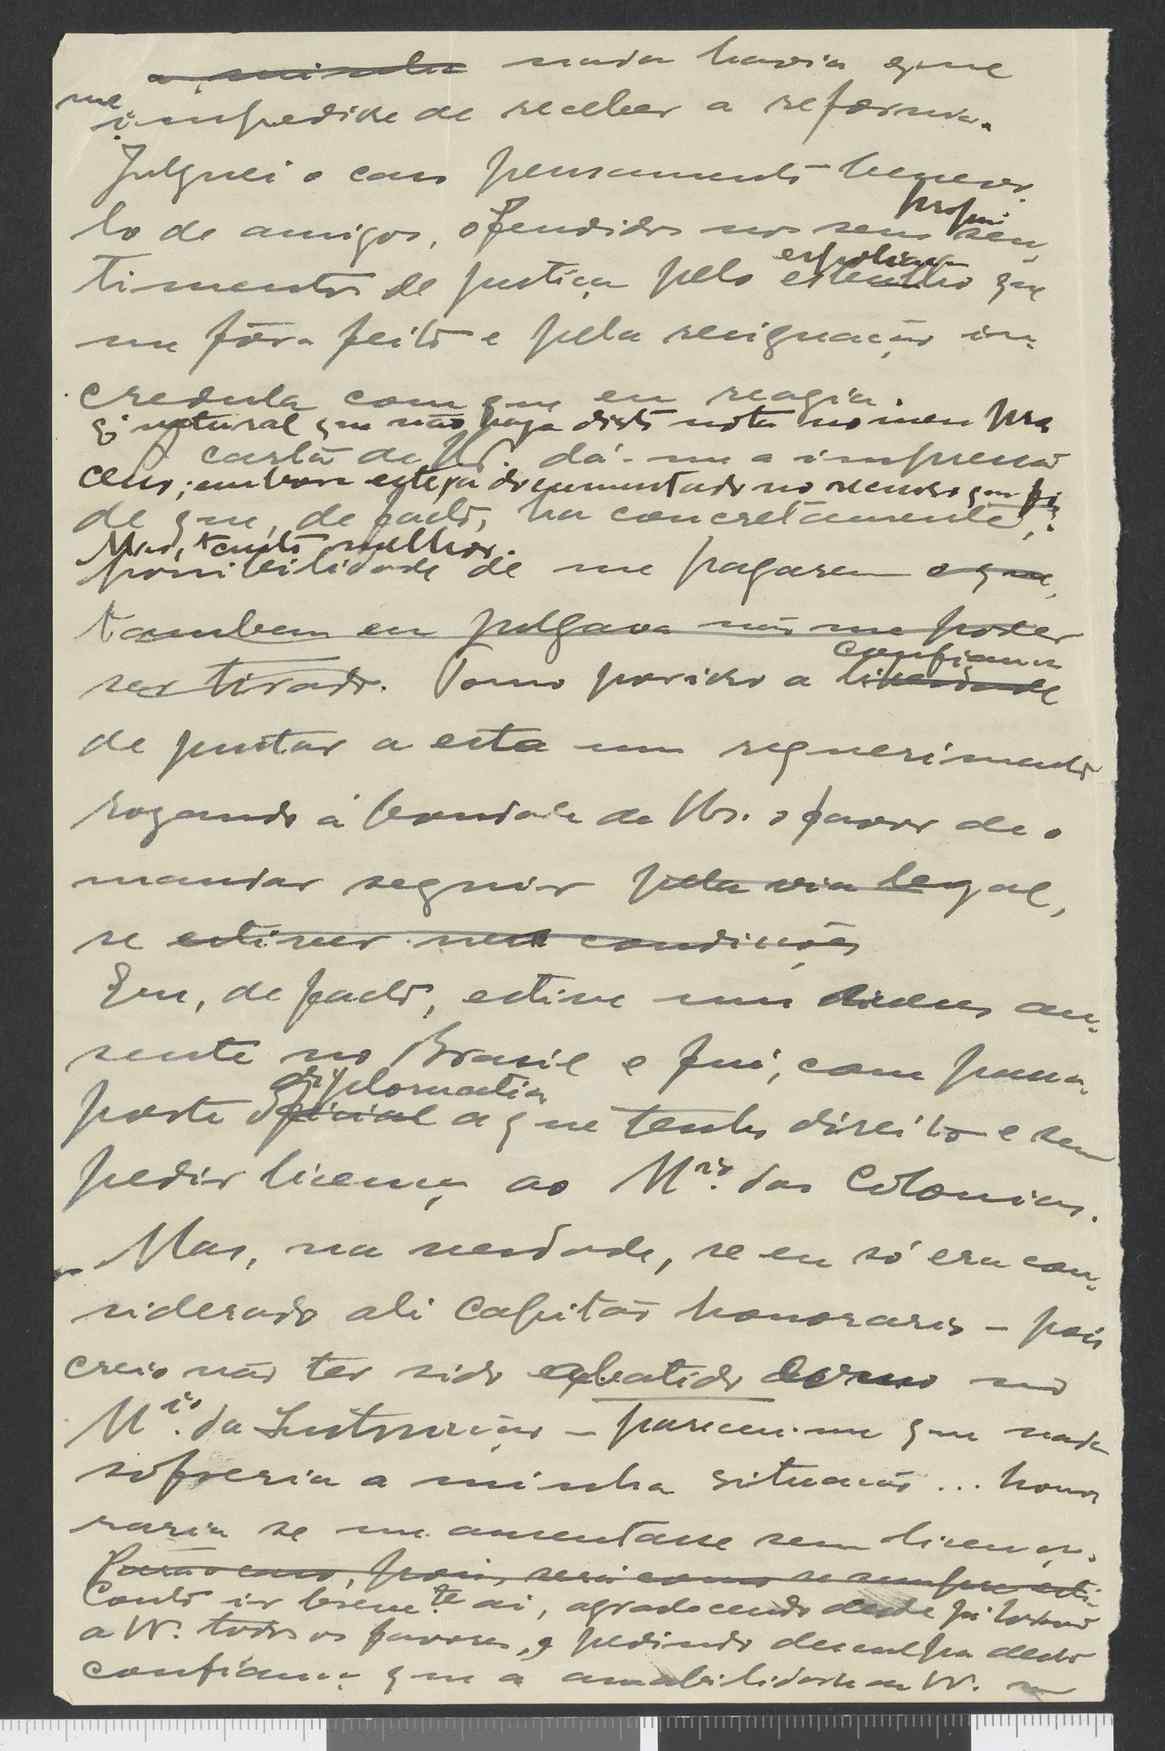 ~~a minha~~ nada havia que
me impedisse de receber a reforma.
Julguei o caso pensamento benevo-
lo de amigos, ofendidos nos seus proprios sen-
timentos de justiça pelo esbulho que
me fôra feito e pela resignação in-
credula com que eu reagia.
É natural que não haja disto nota no meu pro-
A carta de V. dá-me a impressão
cesso; embora esteja documentado no recurso que fiz.
de que, de facto, ha concretamente,
Mas, tanto melhor.
possibilidade de me pagarem ~~o que,~~
~~tambem eu julgava não me poder~~
~~ser tirado.~~ Tomo por isso a confiança ~~liberdade~~
de juntar a esta um requerimento
rogando á bondade de V. o favor de o
mandar seguir ~~pela via legal,~~
~~se estiver nas condições~~
Eu, de facto, estive uns meses au-
sente no Brasil e fui, com passa-
porte diplomatico ~~oficial~~ a que tenho direito e sem
pedir licença ao M.io das Colonias.
Mas, na verdade, se eu só era con-
siderado ali capitão honorario – pois
creio não ter sido abatido como no
M.io da Instrução – pareceu-me que nada
sofreria a minha situação... hono-
raria se me ausentasse sem licença.
~~pois, seria como se sempre esti-~~
Conto ir breve.te aí, agradecendo desde já
a V. todos os favores, e pedindo desculpa desta
confiança que a amabilidade de V. me